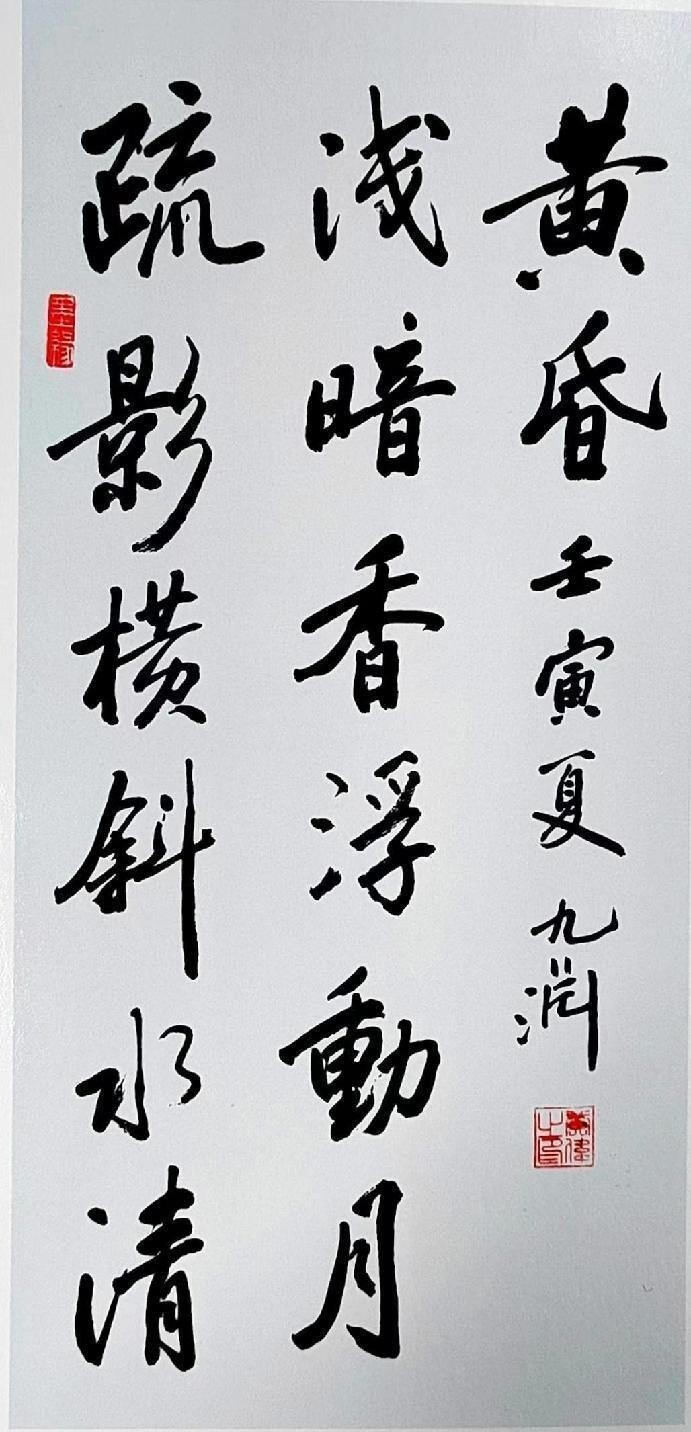 疏影横斜水清
浅暗香浮動月
黄昏壬寅夏九渊